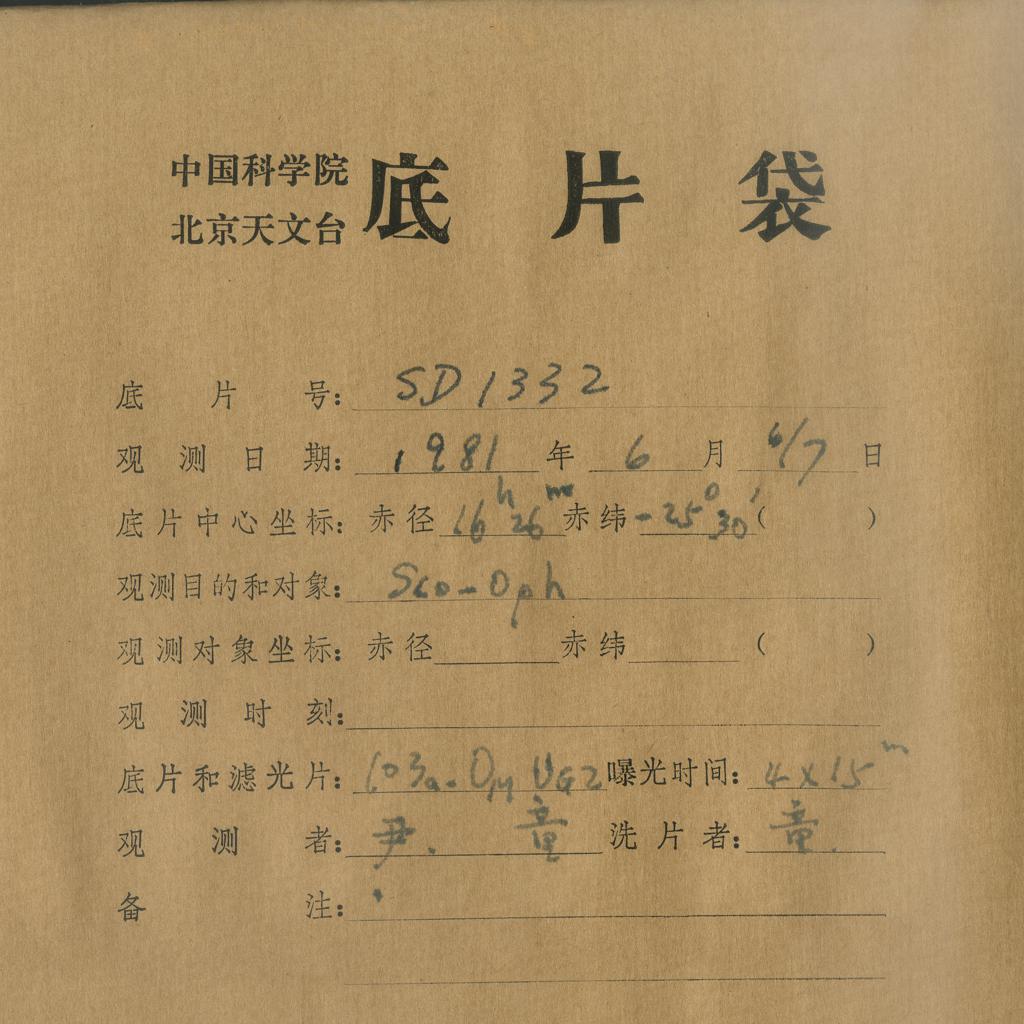 中国科学院
北京天文台
底片袋
底片号: SD1332
观测日期: 1981年 6月 6/7日
底片中心坐标: 赤径 16h 26m 赤纬 -25° 30′ ( )
观测目的和对象: Sco-Oph
观测对象坐标: 赤径 赤纬 ( )
观测时刻:
底片和滤光片: 103a-O UG2 曝光时间: 4×15m
观测者: 尹. 童 洗片者: 童.
备注: